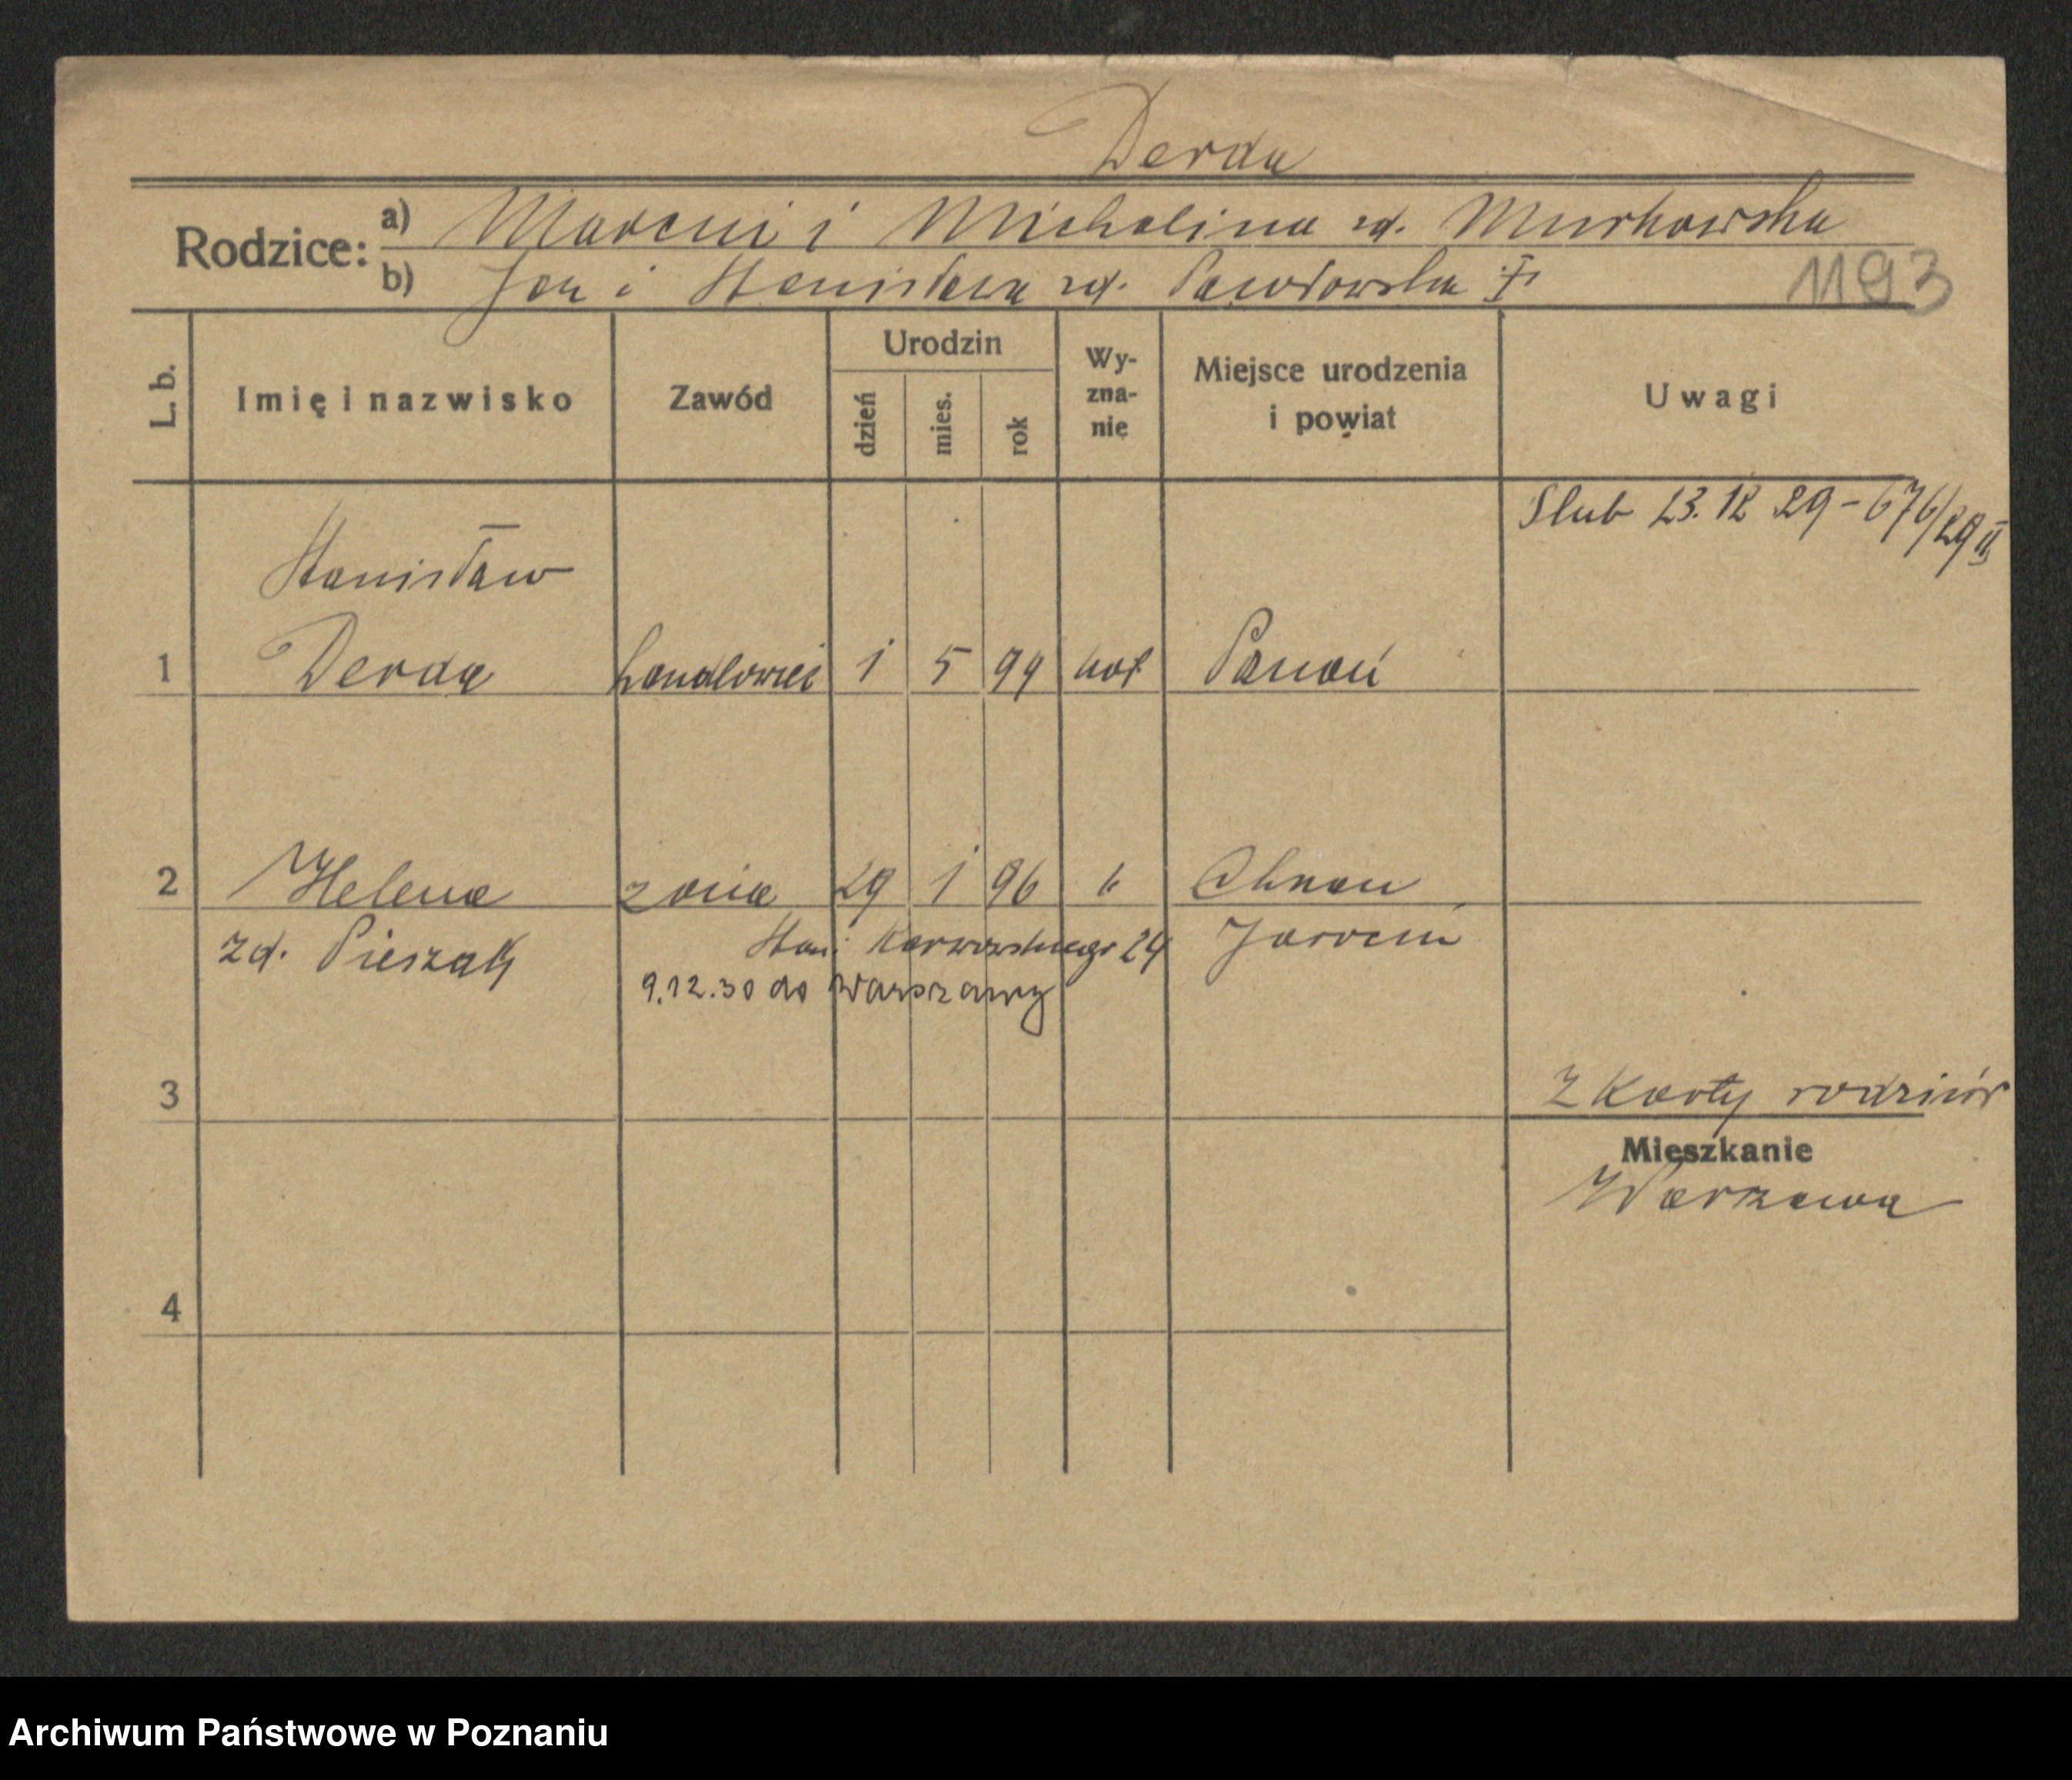 Derda
Rodzice: a) Marcin i Michalina zd. Murkowska
b) Jan i Stanisława zd. Pawłowska
1193
L. b. Imię i nazwisko Zawód Urodzin dzień mies. rok Wy-zna-nie Miejsce urodzenia i powiat Uwagi
Slub 23.12 29 - 676/29 II
Stanisław
1 Derda handlowiec 1 5 99 kat Poznań
2 Helena żona 29 1 96 k
zd. Pieszak Karwowskiego 24 Jarocin
9.12.30 do Warszawy
3 Z Karty rodziców
Mieszkanie
Warszawa
4
Archiwum Państwowe w Poznaniu